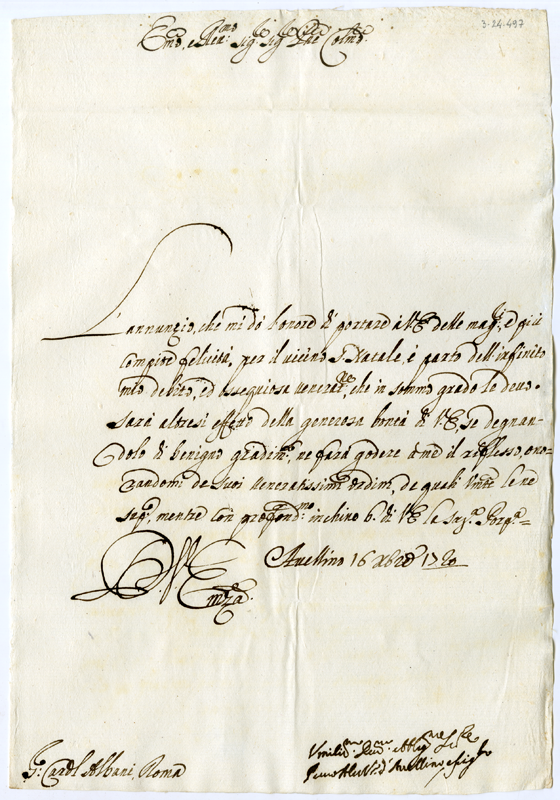 3-24-497
Emo, e Rev.mo Sig.e Sig.e Pne Colmo.
L'annunzio, che mi dò honore di portare à V.E delle mag.ri, e più
compite felicità, per il vicino S. Natale, è parto dell'infinito
mio debito, ed ossequiosa veneraz.ne, che in sommo grado le devo.
sarà altresi effetto della generosa bontà di V.E, se degnan-
dolo di benigno gradim.to, ne farà godere à me il riflesso, ono-
randomi de suoi veneratissimi ordini, de quali
mentre con profond.mo inchino b. di V.E la Porp.a=
Avellino 16 Xbre 1720
D V E
Emza.
S.r Cardl Albani, Roma
Umiliss.mo Devmo
d'Avellino